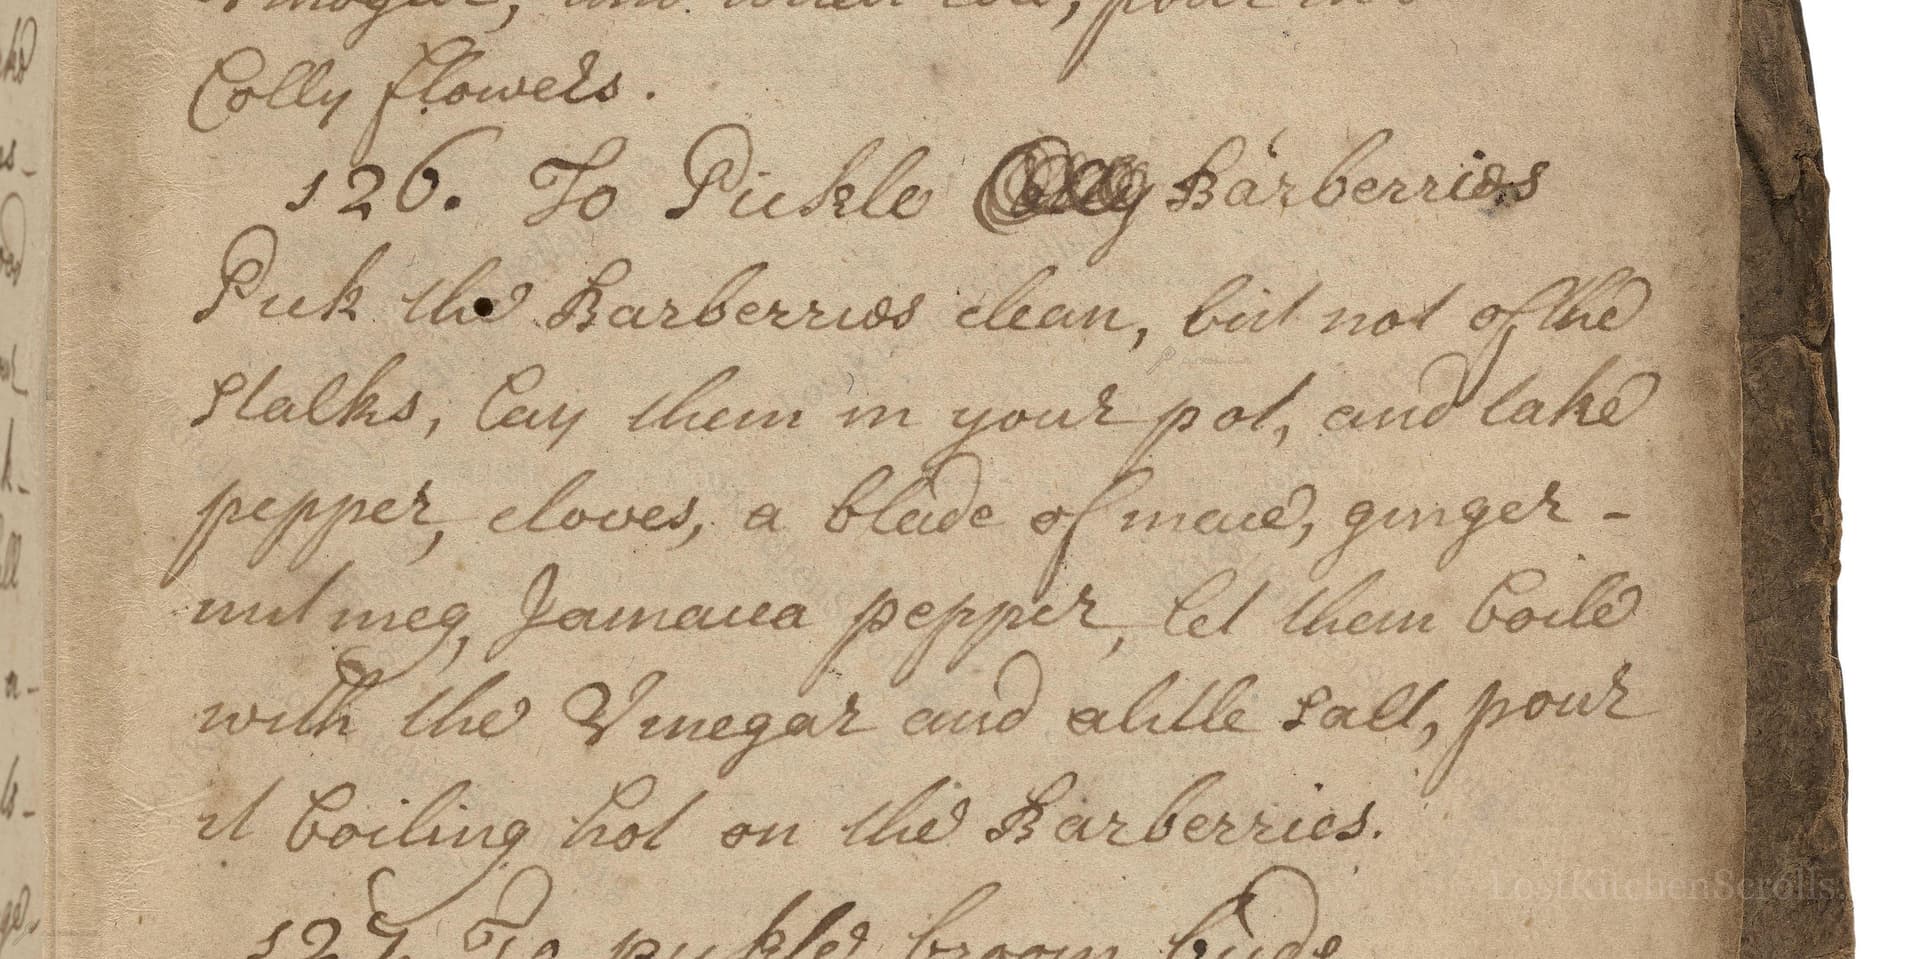 Vinegar, and when cold, pour it on
Colly flowers.
126. To Pickle Colly Barberries
Pick the Barberries clean, but not of the
stalks, lay them in your pot, and take
pepper, cloves, a blade of mace, ginger -
nutmeg, Jamaica pepper, let them boile
with the Vinegar and alitle salt, pour
it boiling hot on the Barberries.
127. To pickle broom buds
LostKitchenScrolls.